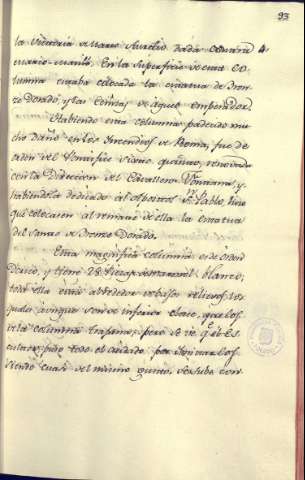 93
la victoria de Marco Aurelio
En la superficie de esta Co
lumna estaba colocada la estatua de Bron
ze Dorado, y las Cenizas de aquel emperador.
Habiendo esta columna padecido mu
cho daño en los Yncendios de Roma, fue de
orden del Pontifice Sixto quinto, renovada
con la Direccion del Cavallero Fontana, y
habiendola dedicado al Apostol Sn. Pablo, hizo
que colocasen al remate de ella la estatua
del Santo de Bronze Dorado.
Esta magnifica columna es de orden
Dorico, y tiene 28 Piezas de marmol blanco;
toda ella está al rededor de bajos relieves los
quales aunque son de inferior clase, que los
de la columna Trajana, pero se ve qe. el Es
cultor puso todo el cuidado, para imitarlos
siendo cuasi del mismo gusto, se sube con